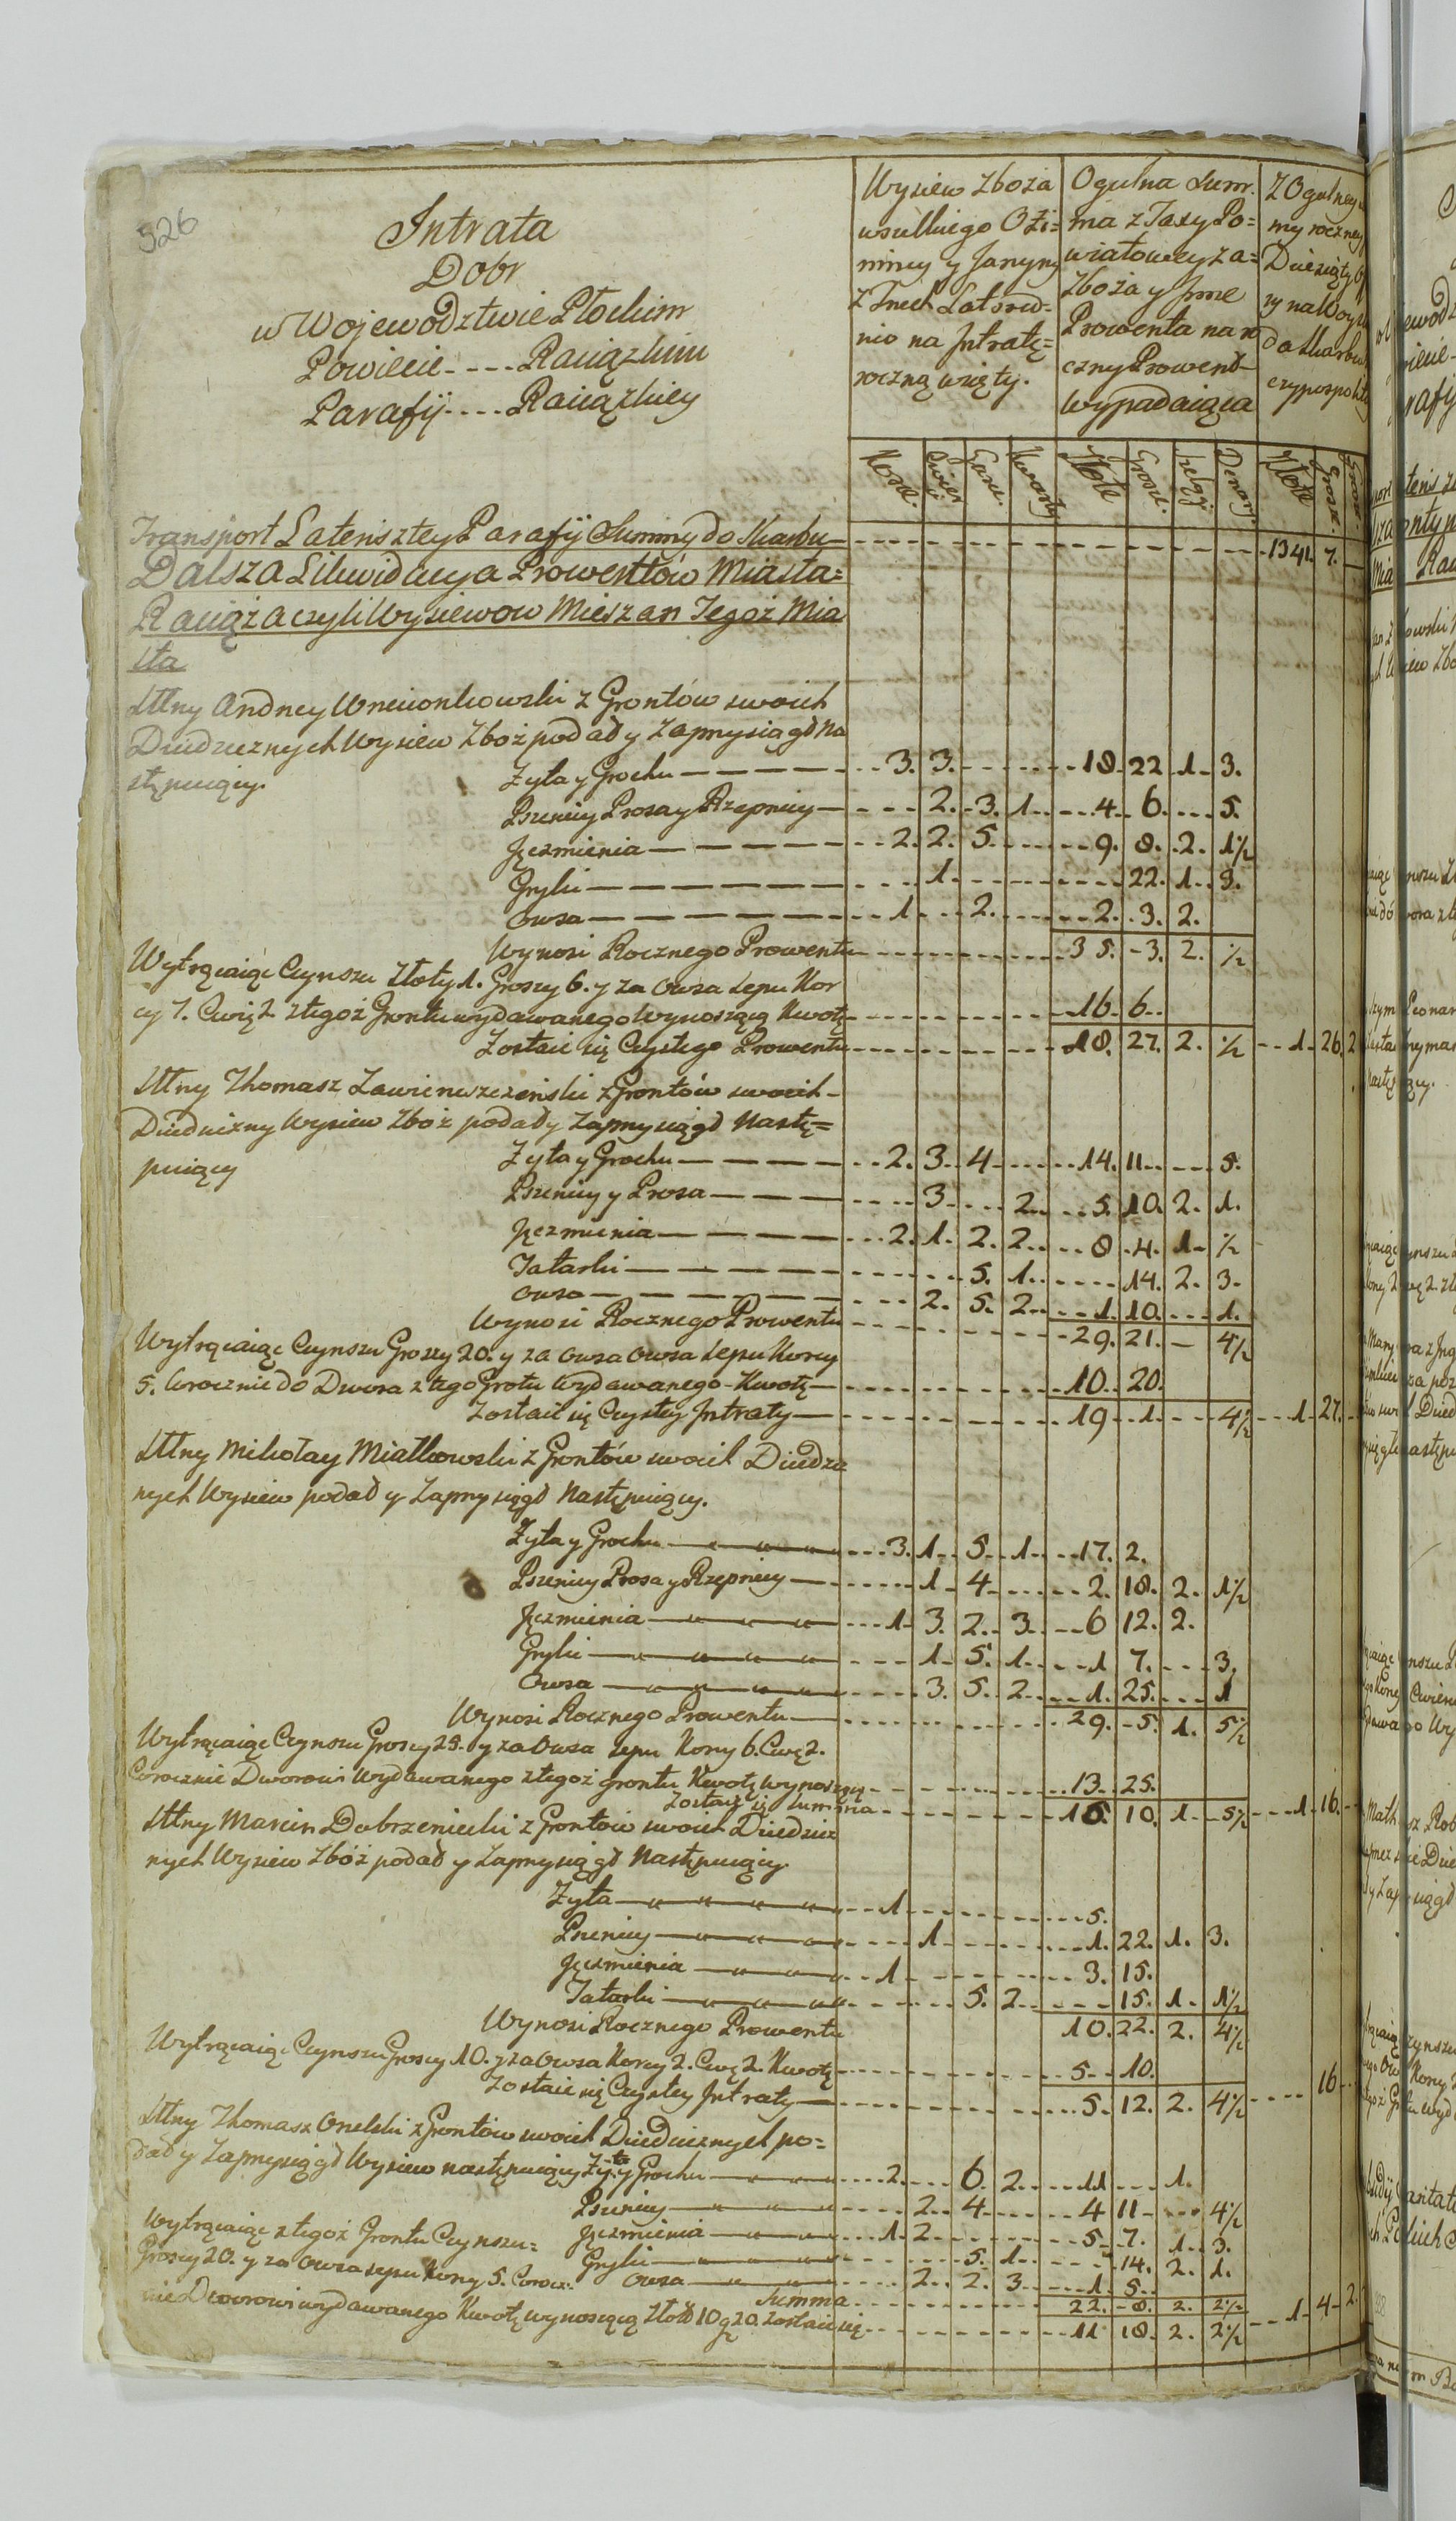 526
Intrata
Dobr
w Wojewodztwie Płockim
Powiecie - - - - Raciązkim
Parafij - - - - Raciązkiey
Wysiew Zboża
wszelkiego Ozi=
miney y Jaryny
z Trzech Lat sred-
nio na Intratę=
roczną wzięty.
Ogulna Sum-
ma z Taxy Po=
wiatowey za=
Zboża y Inne
Prowenta na ro
czny Prowent
wypadaiąca
Z Ogulney
my roczney
Dziesiąty
Korce. Cwier Garce. Kwarty Złote Grosze. Szelągi Denary Złote Grosze.
Transport Lateris z tey Parafij Summy do Skarbu - - - 1341. 7.
Dalsza Likwidacya Prowentów Miasta=
Raciąża czyli Wysiewow Mieszan Tegoż Mia
sta
Andrzey z Grontów swoich
Dziedzicznych Wysiew Zboż podał y Zaprzysiągł Na
stępuiący.
Zyta y Grochu - - - 3. 3. - - - 18. 22 1. 3.
Pszenicy Prosa y Rzepnicy - - - 2. 3. 1. - - 4. 6. - - 5.
Jęczmienia - - - 2. 2. 5. - - - 9. 8. 2. 1½
Gryki - - - 1. - - - 22. 1. 3.
Owsa - - - 1. - 2. - - - 2. 3. 2.
Wynosi Rocznego Prowentu - - - 35. 3. 2. ½
Wytrącaiąc Czynszu Złoty 1. Groszy 6. y za Owsa Sepu Kor
cy 7. Cwię 2 z tegoż Grontu wydawanego wynoszącą Kwotę - - - 16. 6.
Zostaie się Czystego Prowentu - - - 18. 27. 2. ½ - - 1. 26. 2
Thomasz z Grontów swoich
Dziedziczny Wysiew Zboż podał y Zaprzysiągł Nastę=
puiący
Zyta y Grochu - - - 2. 3. 4. - - - 14. 11. - - 5.
Pszenicy y Prosa - - - 3. - - 2. - - 5. 10. 2. 1.
Jęczmienia - - - 2. 1. 2. 2. - - 8. 4. 1. ½
Tatarki - - - 5. 1. - - - 14. 2. 3.
Owsa - - - 2. 5. 2. - - 1. 10. - - 1.
Wynosi Rocznego Prowentu - - - 29. 21. - 4½
Wytrącaiąc Czynszu Groszy 20. y za Owsa Owsa Sepu Korcy
5. Corocznie do Dwora z tego Grotu Wydawanego - Kwotę - - - 10. 20.
Zostaie się Czystey Intraty - - - 19. 1. - - 4½ - - 1. 27.
Mikołay Miałkowski z Grontów swoich Dziedzi
nych Wysiew podał y Zaprzysiągł Następuiący.
Zyta y Grochu - - - 3. 1. 5. 1. - - 17. 2.
Pszenicy Prosa y Rzepnicy - - - 1. 4. - - - 2. 18. 2. 1½
Jęczmienia - - - 1. 3. 2. 3. - - 6 12. 2.
Gryki - - - 1. 5. 1. - - 1 7. - - 3.
Owsa - - - 3. 5. 2. - - 1. 25. - - 1
Wynosi Rocznego Prowentu - - - 29. 5. 1. 5½
Wytrącaiąc Czynszu Groszy 25. y za Owsa Sepu Korcy 6. Cwę 2.
Corocznie Dworowi Wydawanego z tegoż grontu Kwotę wynoszącą - - - 13. 25.
Zostaie się Summa - - - 15. 10. 1. 5½ - - 1. 16.
Marcin Dobrzeniecki z Grontów swoich Dziedzicz
nych Wysiew Zbóż podał y Zaprzysiągł Następuiący
Zyta - - - 1 - - - 5.
Pszenicy - - - 1. - - - 1. 22. 1. 3.
Jęczmienia - - - 1 - - - 3. 15.
Tatarki - - - 5. 2. - - - 15. 1. 1½
Wynosi Rocznego Prowentu 10. 22. 2. 4½
Wytrącaiąc Czynszu Groszy 10. y za Owsa Korcy 2. Cwę 2. Kwotę - - - 5. 10.
Zostaie się Czystey Intraty - - - 5. 12. 2. 4½ - - - 16
Thomasz z Grontów swoich Dziedzicznych po=
dał y Zaprzysiągł Wysiew następuiący Zyta y Grochu - - - 2. - - 6. 2. - - 11 - - 1.
Pszenicy - - - 2. 4. - - - 4 11 - - 4½
Wytrącaiąc z tegoż Grontu Czynszu= Jęczmienia - - - 1. 2. - - - 5. 7. 1. 3.
Groszy 20. y za Owsa sepu Korcy 5. Corocz: Gryki - - - 5. 1. - - - 14. 2. 1.
Owsa - - - 2. 2. 3. - - 1. 5.
Summa - - - 22. 8. 2. 2½
nie Dworowi wydawanego Kwotę wynoszącą Złotł 10 g 20. Zostaie się - - - 11 18. 2. 2½ - - 1. 4. 2